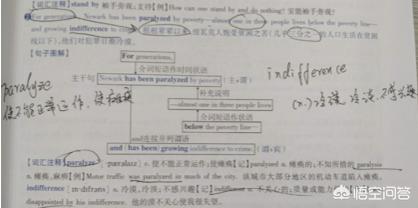 【词汇注释】stand by 袖手旁观; 支持 [例] How can one stand by and do nothing? 岂能袖手旁观?
For generations, Newark has been paralyzed by poverty—almost one in three people lives below the poverty line—
and growing indifference to crime.
【句子图解】
For generations,
介词短语作时间状语
主干句 Newark has been paralyzed by poverty
补充说明
—almost one in three people lives
介词短语作状语
below the poverty line—
and连接并列谓语
and (has been) growing indifference to crime.
paralyze
使不能正常运作,使瘫痪
indifference
(n.) 冷漠,
【词汇注释】paralyze v. 使不能正常运作; 使瘫痪 [记] paralyzed a. 瘫痪的; 不知所措的 paralysis
n. 瘫痪, 麻痹 [例] Motor traffic was paralyzed in much of the city. 该城市大部分地区的机动车道陷入瘫痪。
indifference n. 冷漠, 冷淡; 不感兴趣 [记] indifferent a. 不关心的;
disappointed by his indifference. 他的漠不关心使我很失望。
悟空问答